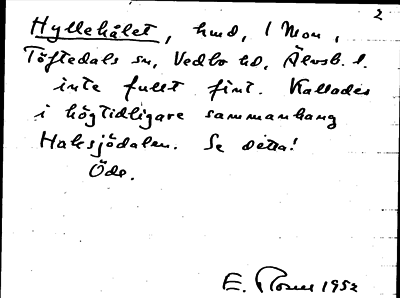 2
Hyllehålet, hmd, 1 Mon,
Töftedals sn, Vedbo hd, Älvsb. l.
inte fullt fint. Kallades
i högtidligare sammanhang
Haksjödalen. Se detta!
Öde.
E. 1952